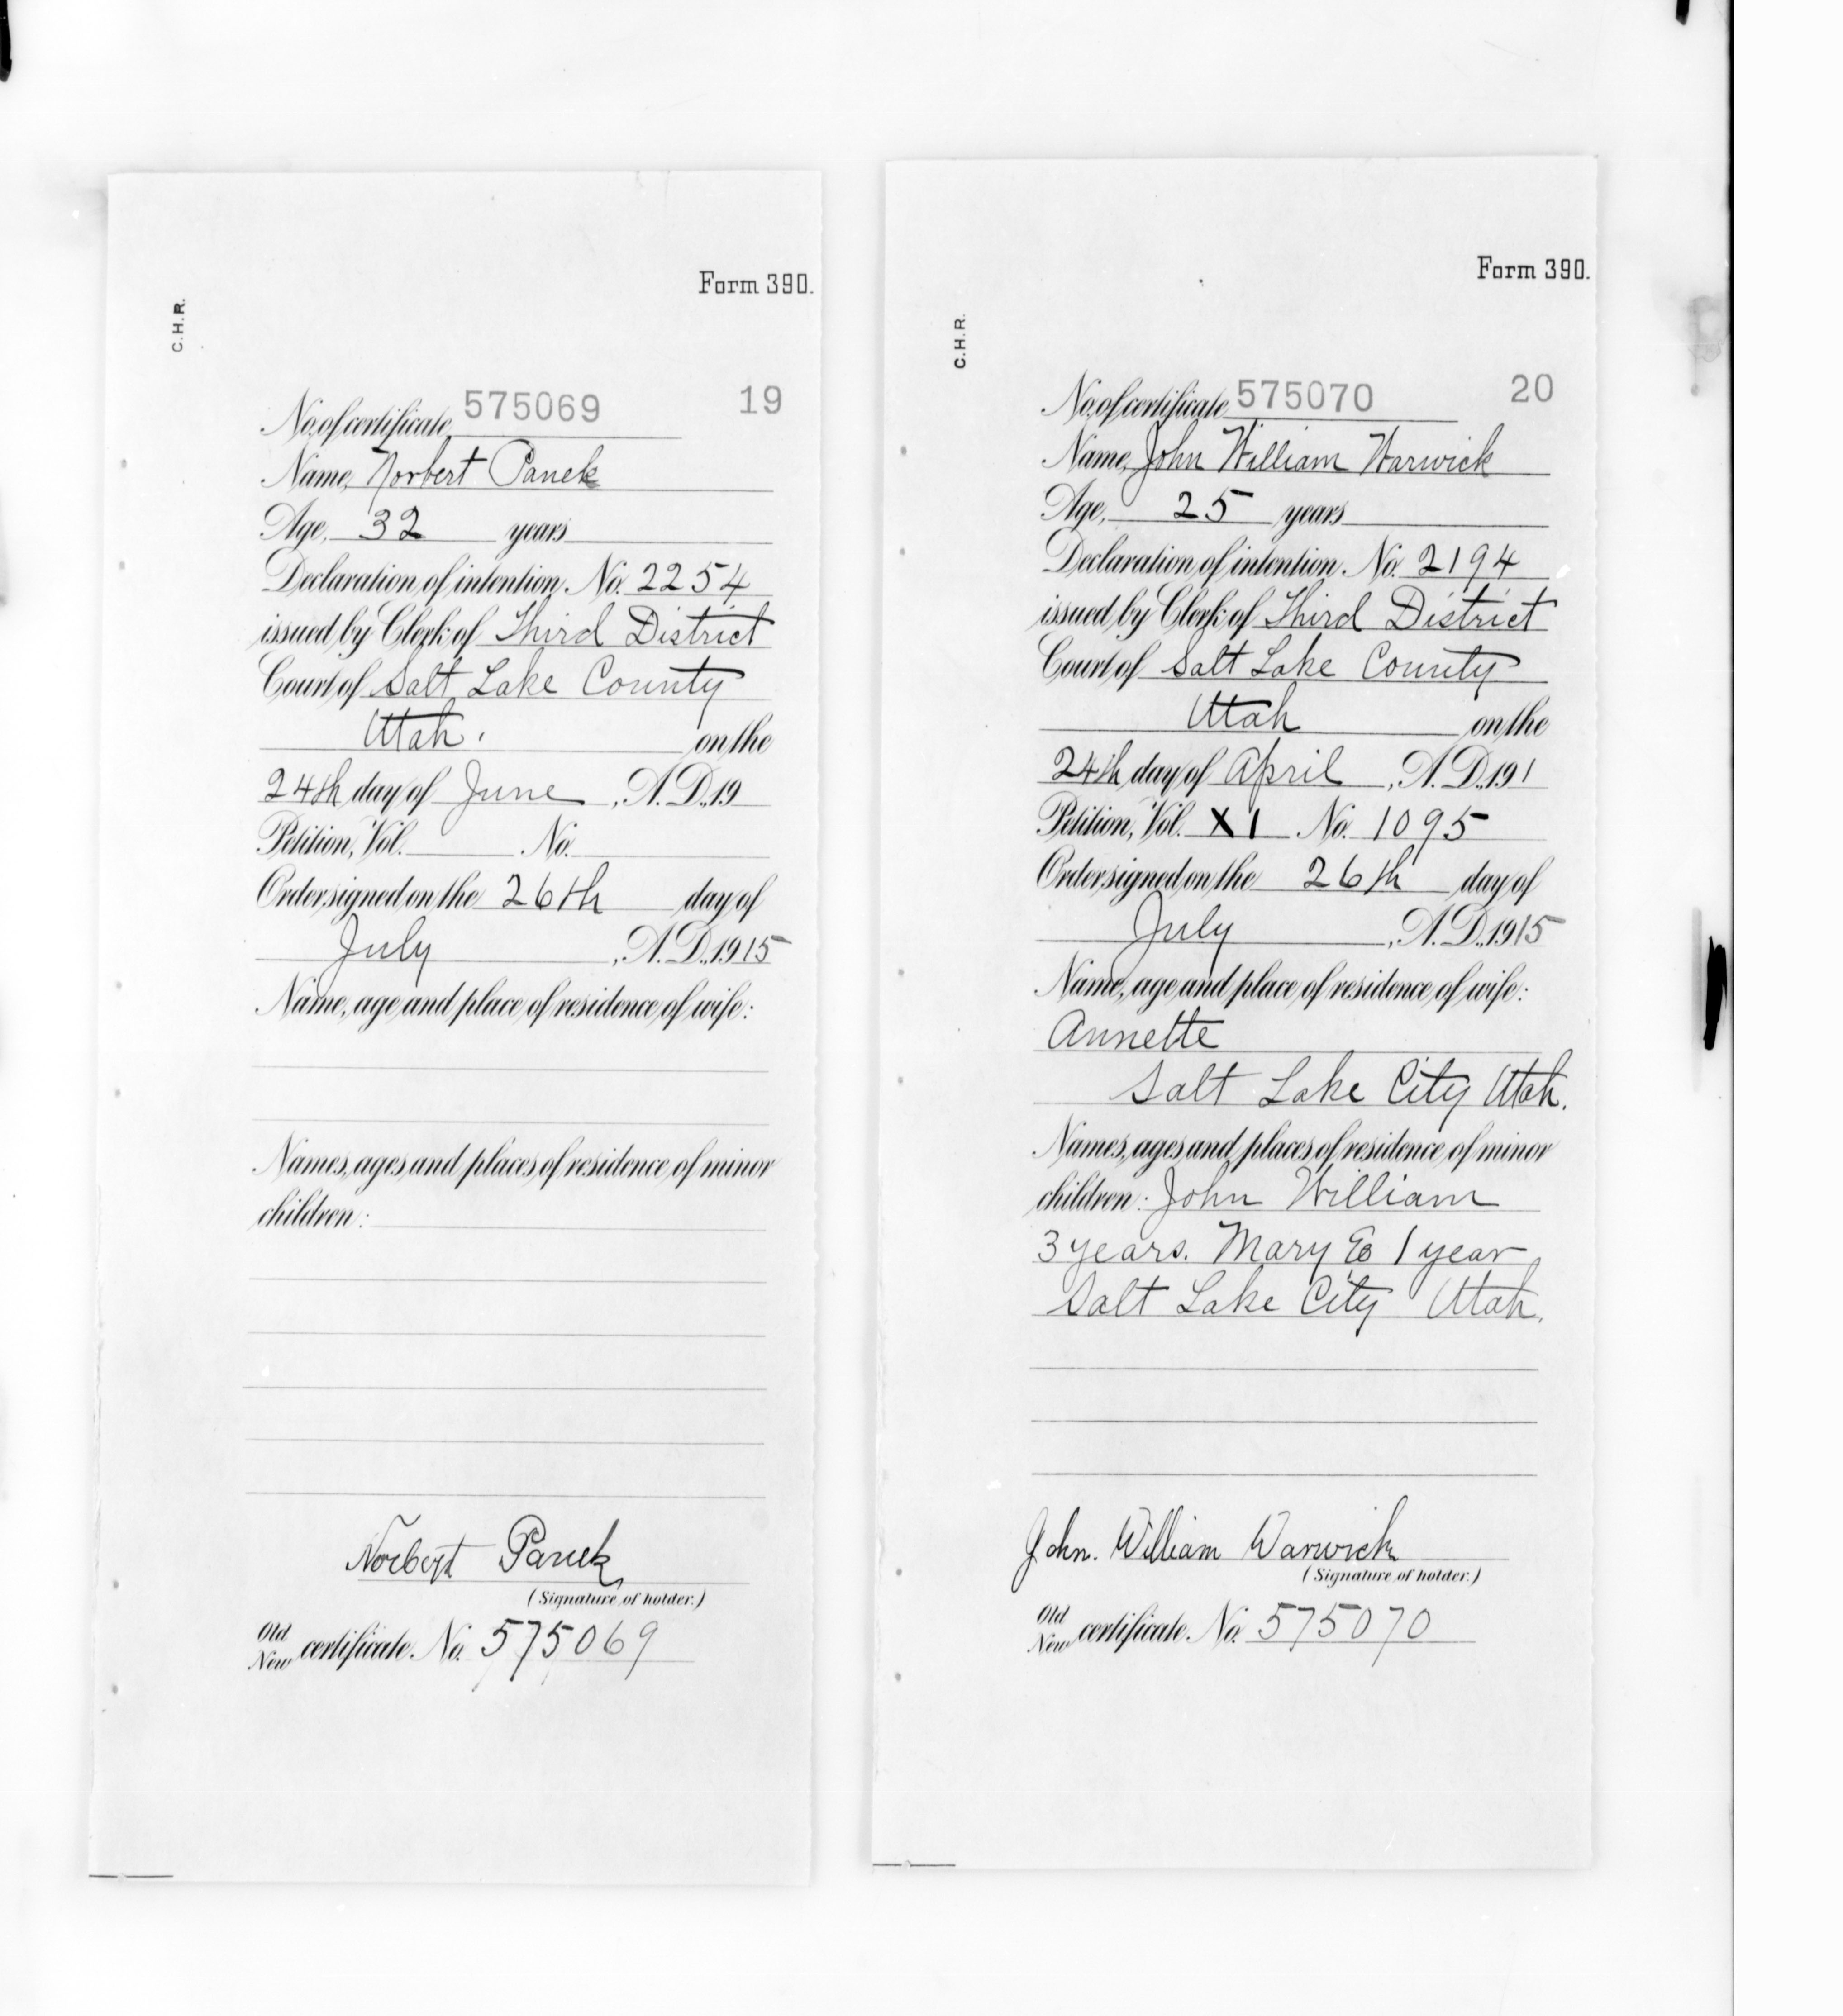 Form 390.
C.H.R.
No. of certificate, 575069 19
Name, Norbert Panek
Age, 32 years
Declaration of intention, No. 2254
issued by Clerk of Third District
Court of Salt Lake County
Utah. on the
24th day of June, A. D., 19
Petition, Vol. No.
Order signed on the 26th day of
July, A. D., 1915
Name, age and place of residence of wife:
Names, ages and places of residence of minor
children:
Norbert Panek
(Signature of holder.)
Old
New certificate, No. 575069
Form 390.
C.H.R.
No. of certificate, 575070 20
Name, John William Warwick
Age, 25 years
Declaration of intention, No. 2194
issued by Clerk of Third District
Court of Salt Lake County
Utah on the
24th day of April, A. D., 191
Petition, Vol. X1 No. 1095
Order signed on the 26th day of
July, A. D., 1915
Name, age and place of residence of wife:
Annette
Salt Lake City Utah.
Names, ages and places of residence of minor
children: John William
3 years. Mary E 1 year
Salt Lake City Utah.
John. William Warwick
(Signature of holder.)
Old
New certificate, No. 575070